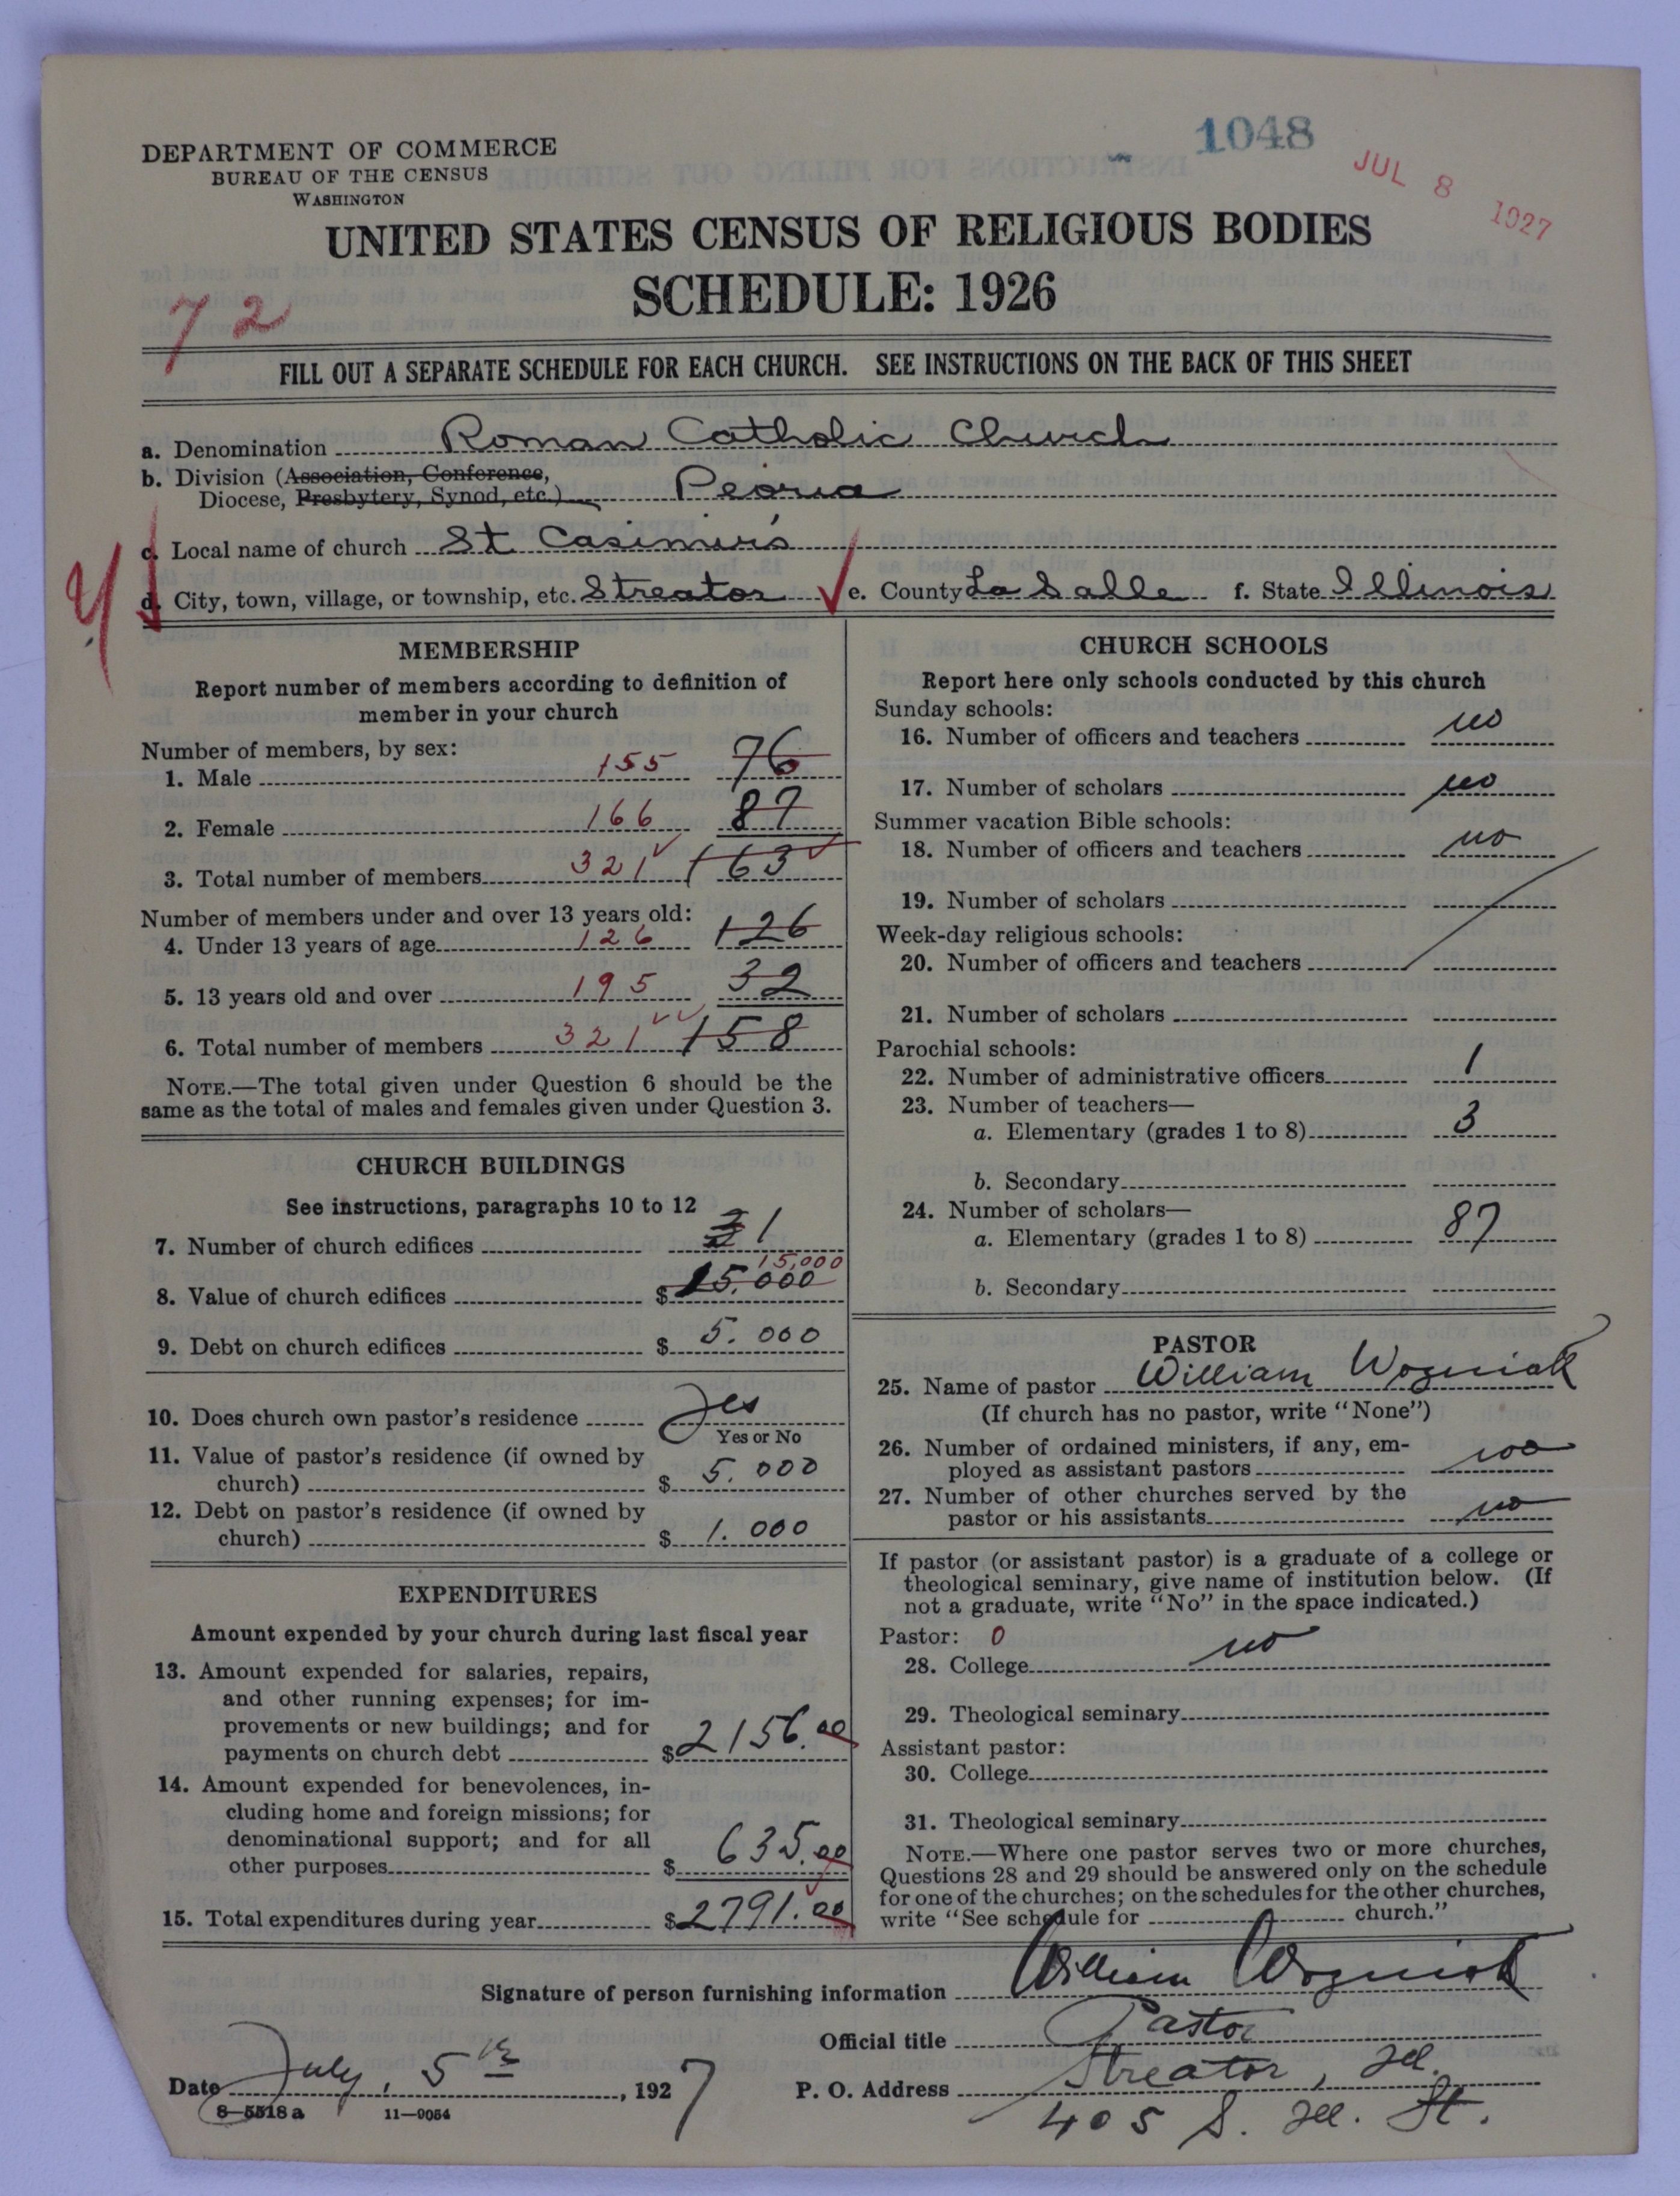 1048
JUL 8 1927
DEPARTMENT OF COMMERCE
BUREAU OF THE CENSUS
WASHINGTON
UNITED STATES CENSUS OF RELIGIOUS BODIES
SCHEDULE: 1926
72
FILL OUT A SEPARATE SCHEDULE FOR EACH CHURCH. SEE INSTRUCTIONS ON THE BACK OF THIS SHEET
a. Denomination Roman Catholic Church
b. Division (Association, Conference,
Diocese, Presbytery, Synod, etc.) Peoria
c. Local name of church St Casimir's
d. City, town, village, or township, etc. Streator e. County La Salle f. State Illinois
MEMBERSHIP
Report number of members according to definition of
member in your church
Number of members, by sex:
1. Male 155 76
2. Female 166 87
3. Total number of members 321 163
Number of members under and over 13 years old:
4. Under 13 years of age 126 126
5. 13 years old and over 195 32
6. Total number of members 321 158
NOTE.—The total given under Question 6 should be the
same as the total of males and females given under Question 3.
CHURCH BUILDINGS
See instructions, paragraphs 10 to 12
7. Number of church edifices 1
15,000
8. Value of church edifices $ 15.000
9. Debt on church edifices $ 5.000
10. Does church own pastor's residence Yes
Yes or No
11. Value of pastor's residence (if owned by
church) $ 5.000
12. Debt on pastor's residence (if owned by
church) $ 1.000
EXPENDITURES
Amount expended by your church during last fiscal year
13. Amount expended for salaries, repairs,
and other running expenses; for im-
provements or new buildings; and for
payments on church debt $ 2156.00
14. Amount expended for benevolences, in-
cluding home and foreign missions; for
denominational support; and for all
other purposes $ 635.00
15. Total expenditures during year $ 2791.00
CHURCH SCHOOLS
Report here only schools conducted by this church
Sunday schools:
16. Number of officers and teachers no
17. Number of scholars no
Summer vacation Bible schools:
18. Number of officers and teachers no
19. Number of scholars
Week-day religious schools:
20. Number of officers and teachers
21. Number of scholars
Parochial schools:
22. Number of administrative officers 1
23. Number of teachers—
a. Elementary (grades 1 to 8) 3
b. Secondary
24. Number of scholars—
a. Elementary (grades 1 to 8) 87
b. Secondary
PASTOR
25. Name of pastor William Wozniak
(If church has no pastor, write "None")
26. Number of ordained ministers, if any, em-
ployed as assistant pastors no
27. Number of other churches served by the
pastor or his assistants no
If pastor (or assistant pastor) is a graduate of a college or
theological seminary, give name of institution below. (If
not a graduate, write "No" in the space indicated.)
Pastor: 0
28. College no
29. Theological seminary
Assistant pastor:
30. College
31. Theological seminary
NOTE.—Where one pastor serves two or more churches,
Questions 28 and 29 should be answered only on the schedule
for one of the churches; on the schedules for the other churches,
write "See schedule for church."
Signature of person furnishing information William Wozniak
Official title Pastor
Date July, 5th, 1927
P. O. Address Streator, Ill.
405 S. Ill. St.
8—5518 a 11—9054